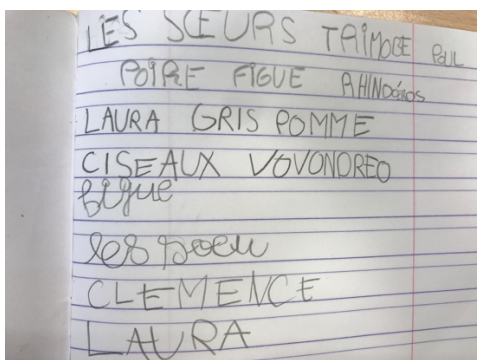 LES SŒURS TRIMOBE POUL
POIRE FIGUE RHINOCÉROS
LAURA GRIS POMME
CISEAUX VOVONDREO
figue
les soeu
CLEMENCE
LAURA